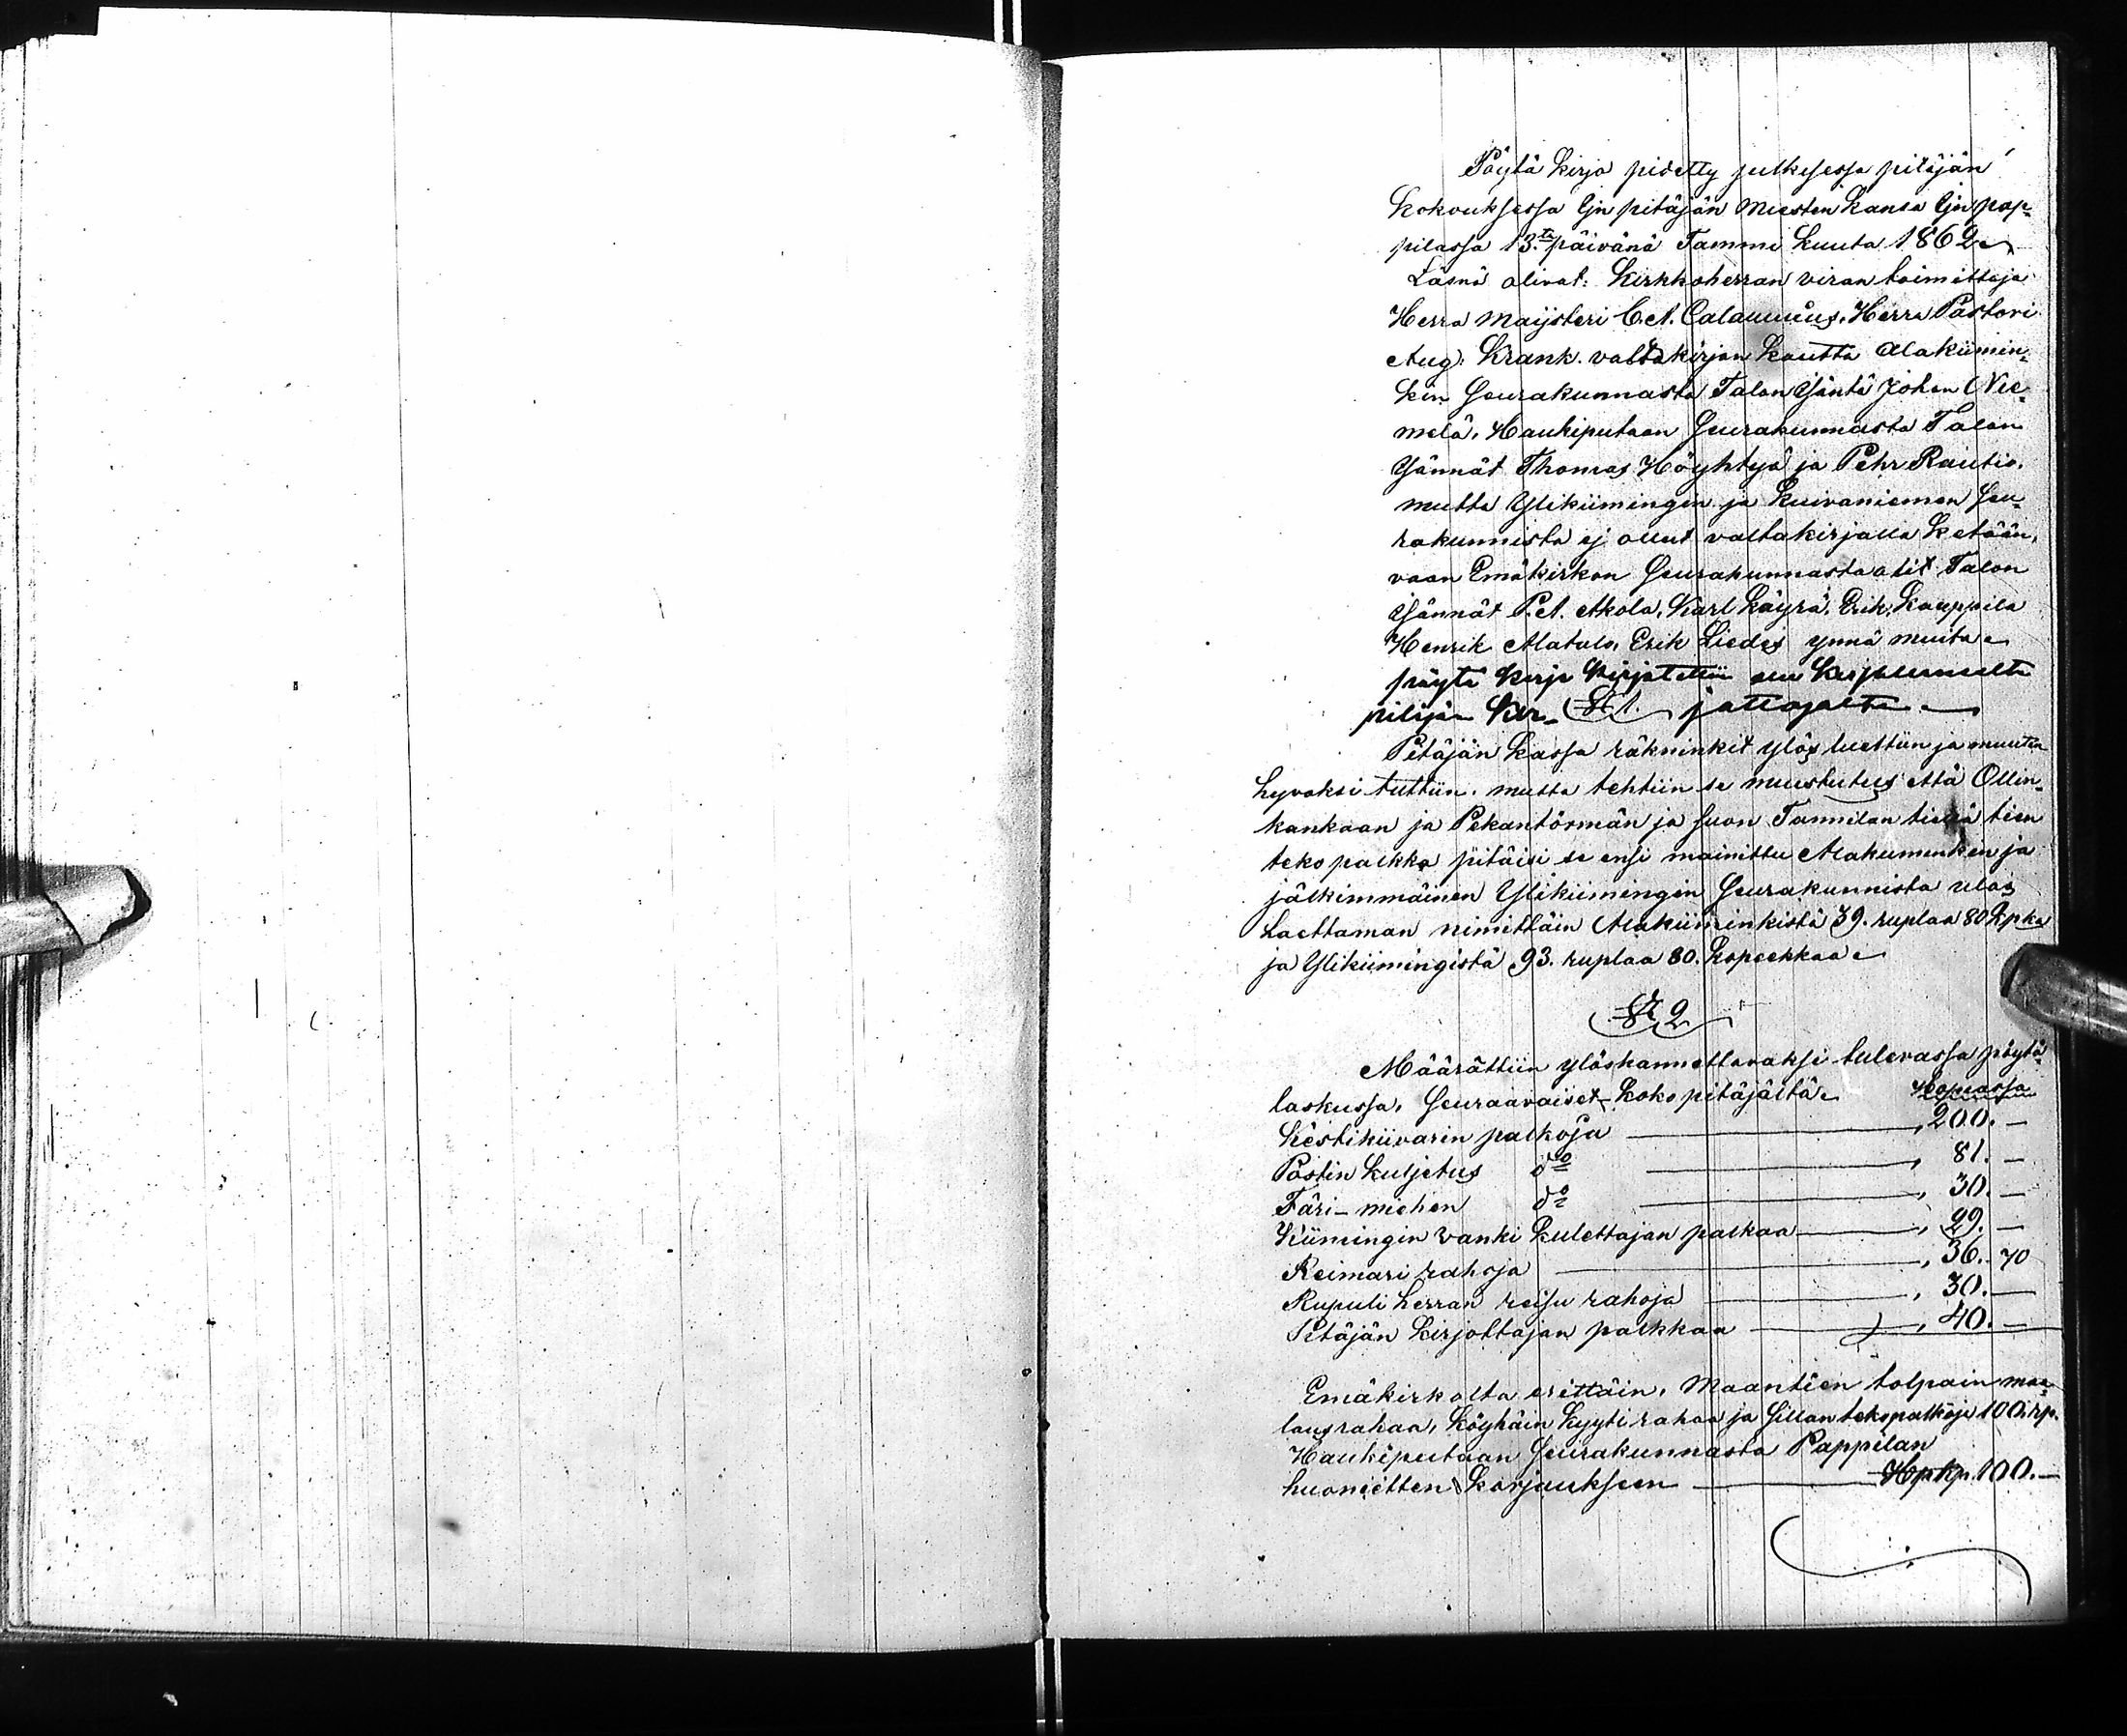 Pöytä kirja pidetty julkisessa pitäjän
kokouksessa Ijn pitäjän Miesten kansa Ijn pap-
pilassa 13.ta päivänä Tammi kuuta 1862
Läsnä olivat: Kirkkoherran viran toimittaja
Herra Maijsteri C.A. Calamnius, Herra Pastori
Aug. Krank. valtakirjan kautta Alakiimin-
kin Seurakunnasta Talon Isäntä Johan Nie-
melä, Haukiputaan Seurakunnasta Talon
Isännät Thomas Höyhtyä ja Pehr Rautio,
mutta Ylikiimingin ja Kuivaniemen Seu-
rakunnista ej ollut valtakirjalla ketään,
vaan Emäkirkon Seurakunnasta olit Talon
Isännät P.A. Akola, Karl Käyrä, Erik Kauppila
Henrik Alatalo, Erik Liedes ynnä muita
pöytä kirja kirjotettiin
pitäjän §1.
Pitäjän kassa räkninkit ylös luettiin ja muuten
hyvaksi tuttiin, mutta tehtiin se muustutus että Ollin-
kankaan ja Pekantörmän ja suon Tannilan tiellä tien
teko palkka pitäisi se ensi mainittu Alakiiminken ja
jälkimmäinen Ylikiimingin Seurakunnista ulos
haettaman nimittäin Alakiiminkistä 39. ruplaa 80 kpka
ja Ylikiimingistä 93. ruplaa 80. kopeekkaa
§ 2
Määrättiin ylöskannettavaksi tulevassa pöytä
laskussa, Seuraavaiset koko pitäjältä Hopeassa
Kestikiivarin palkoja 200. —
Postin kuljetus do 81. —
Färi-miehen do 30. —
Kiimingin vanki kulettajan palkaa 29. —
Reimari rahoja 36. 70
Rupuli herran reisu rahoja 30. —
Pitäjän kirjottajan palkkaa 40. —
Emäkirkolta erittäin, Maantien tolpain maa-
lausrahaa, köyhäin kyyti rahaa ja sillan tekopalkoja 100. rp.
Haukiputaan Seurakunnasta Pappilan
huonietten korjaukseen Hp rp. 100. —